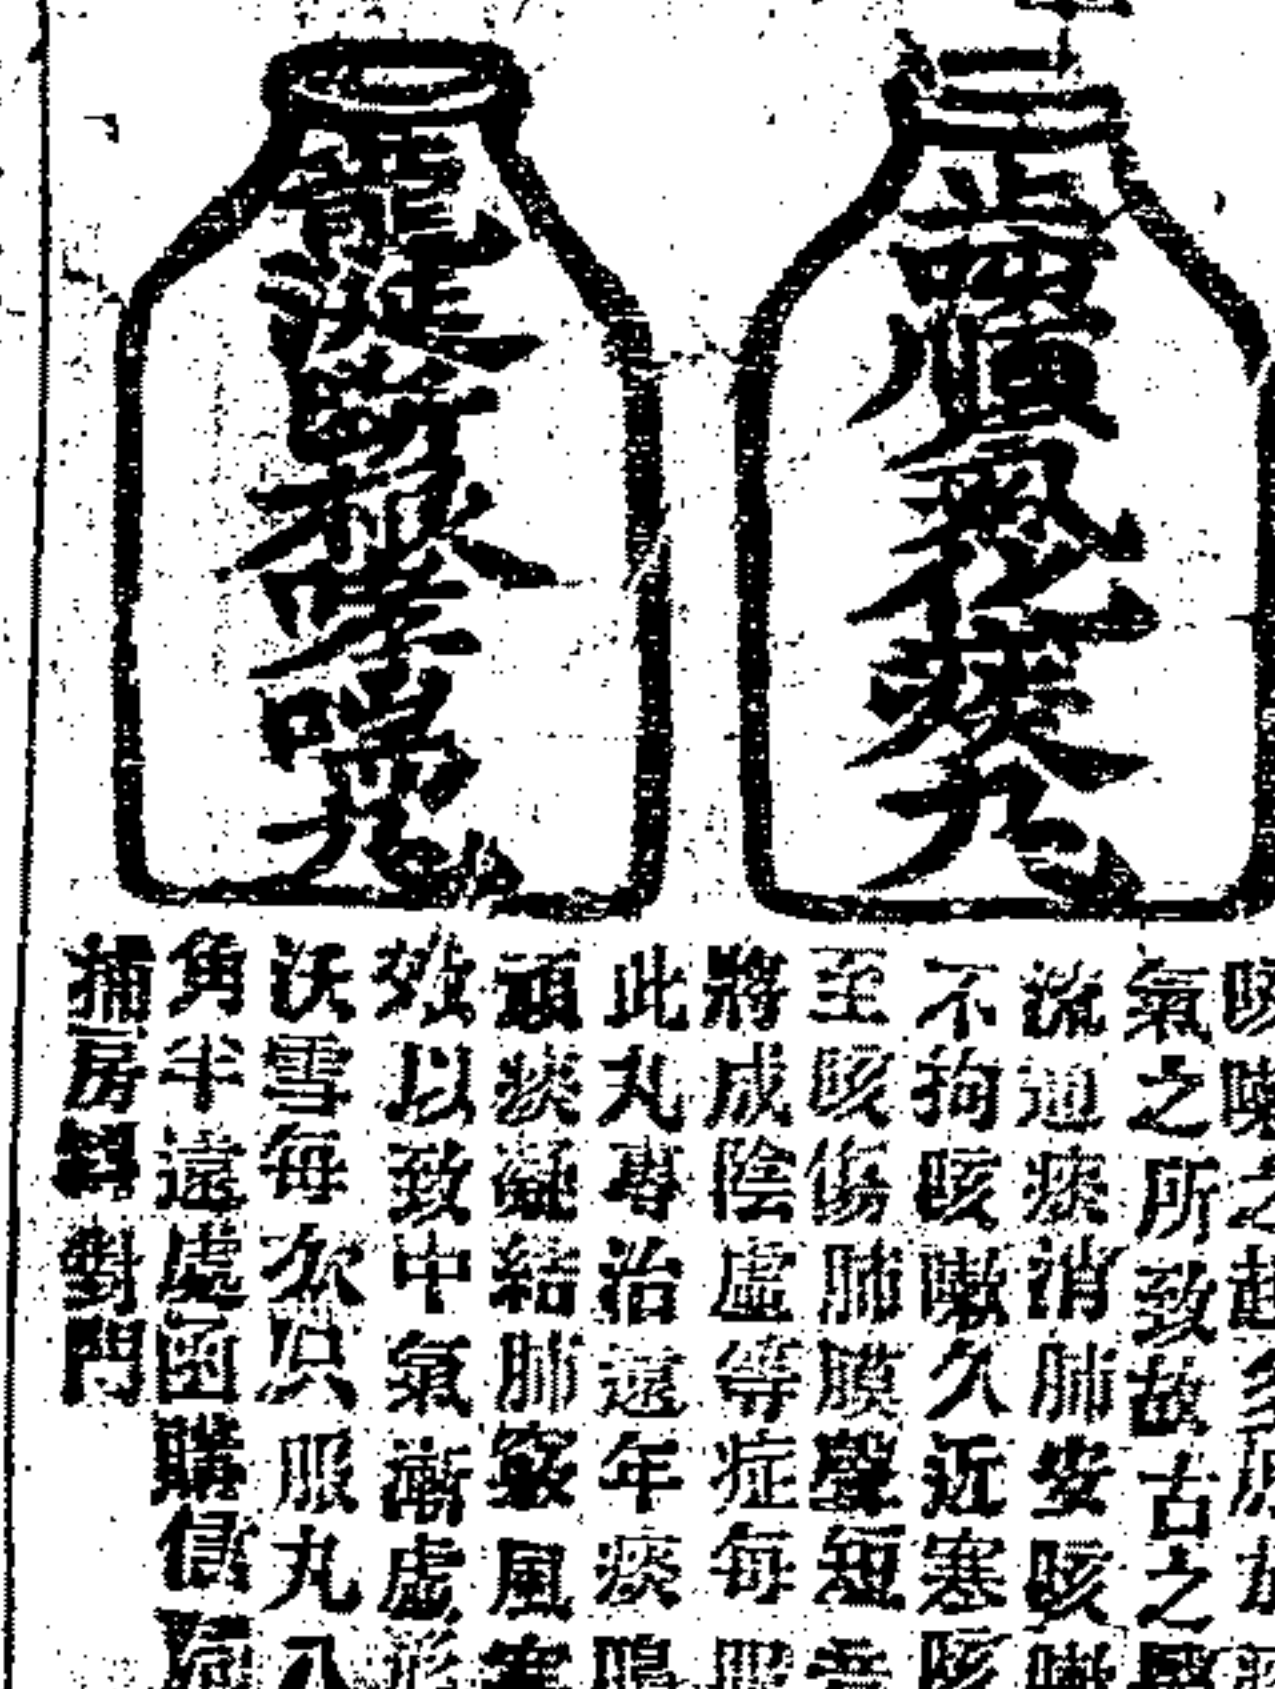 止嗽順氣化痰丸
龍涎斷根哮喘丸
咳嗽之起多
氣之所致故古之醫
流通痰消肺安咳嗽
不拘咳嗽久近寒咳
至咳傷肺膜聲短
將成陰虛等症每服
此丸專治遠年痰
頑痰凝結肺竅風寒
效以致中氣漸虛形
沃雪每次只服丸八
角半遠處函購信局
捕房斜對門